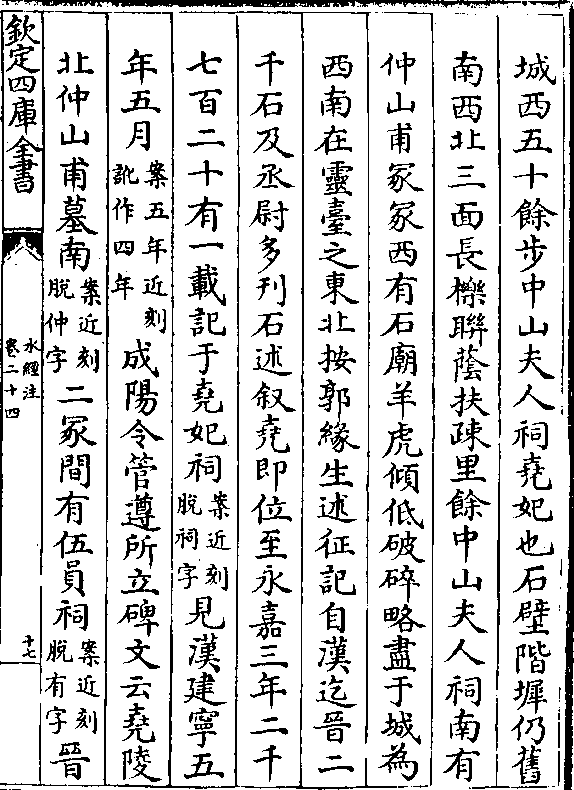 城西五十餘步中山夫人祠堯妃也石壁階墀仍舊
南西北三面長櫟聯蔭扶疎里餘中山夫人祠南有
仲山甫冢冢西有石廟羊虎傾低破碎略盡于城為
西南在靈臺之東北按郭緣生述征記自漢迄晉二
千石及丞尉多刊石述叙堯即位至永嘉三年二千
七百二十有一載記于堯妃祠案近刻脫祠字見漢建寧五
年五月案五年近刻訛作四年成陽令管遵所立碑文云堯陵
北仲山甫墓南案近刻脫仲字二冢間有伍員祠案近刻脫有字晉
欽定四庫全書
水經注
卷二十四
十七